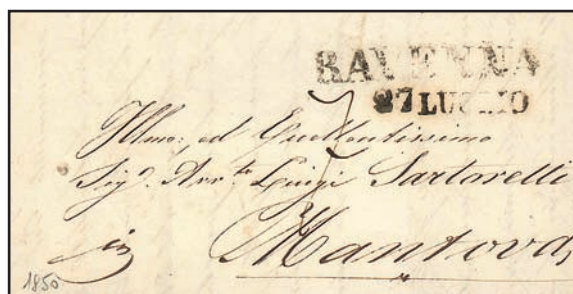 RAVENNA
27 LUGLIO
Illmo: ed Eccellentissimo
Sigr. Avv.to Luigi Sartorelli
in Mantova
1850